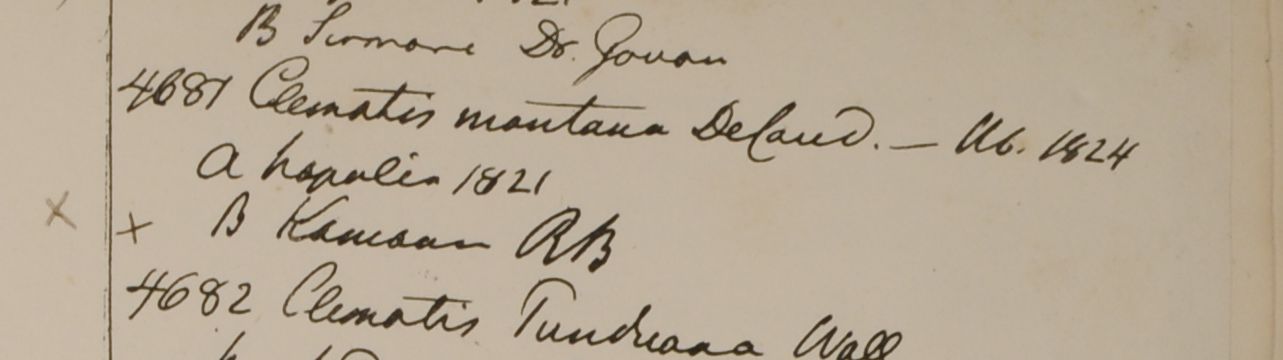 B Sirmore Dr. Govan
4681 Clematis montana DeCand. — Wb. 1824
a Napalia 1821
B Kamaon RB
4682 Clematis Wall